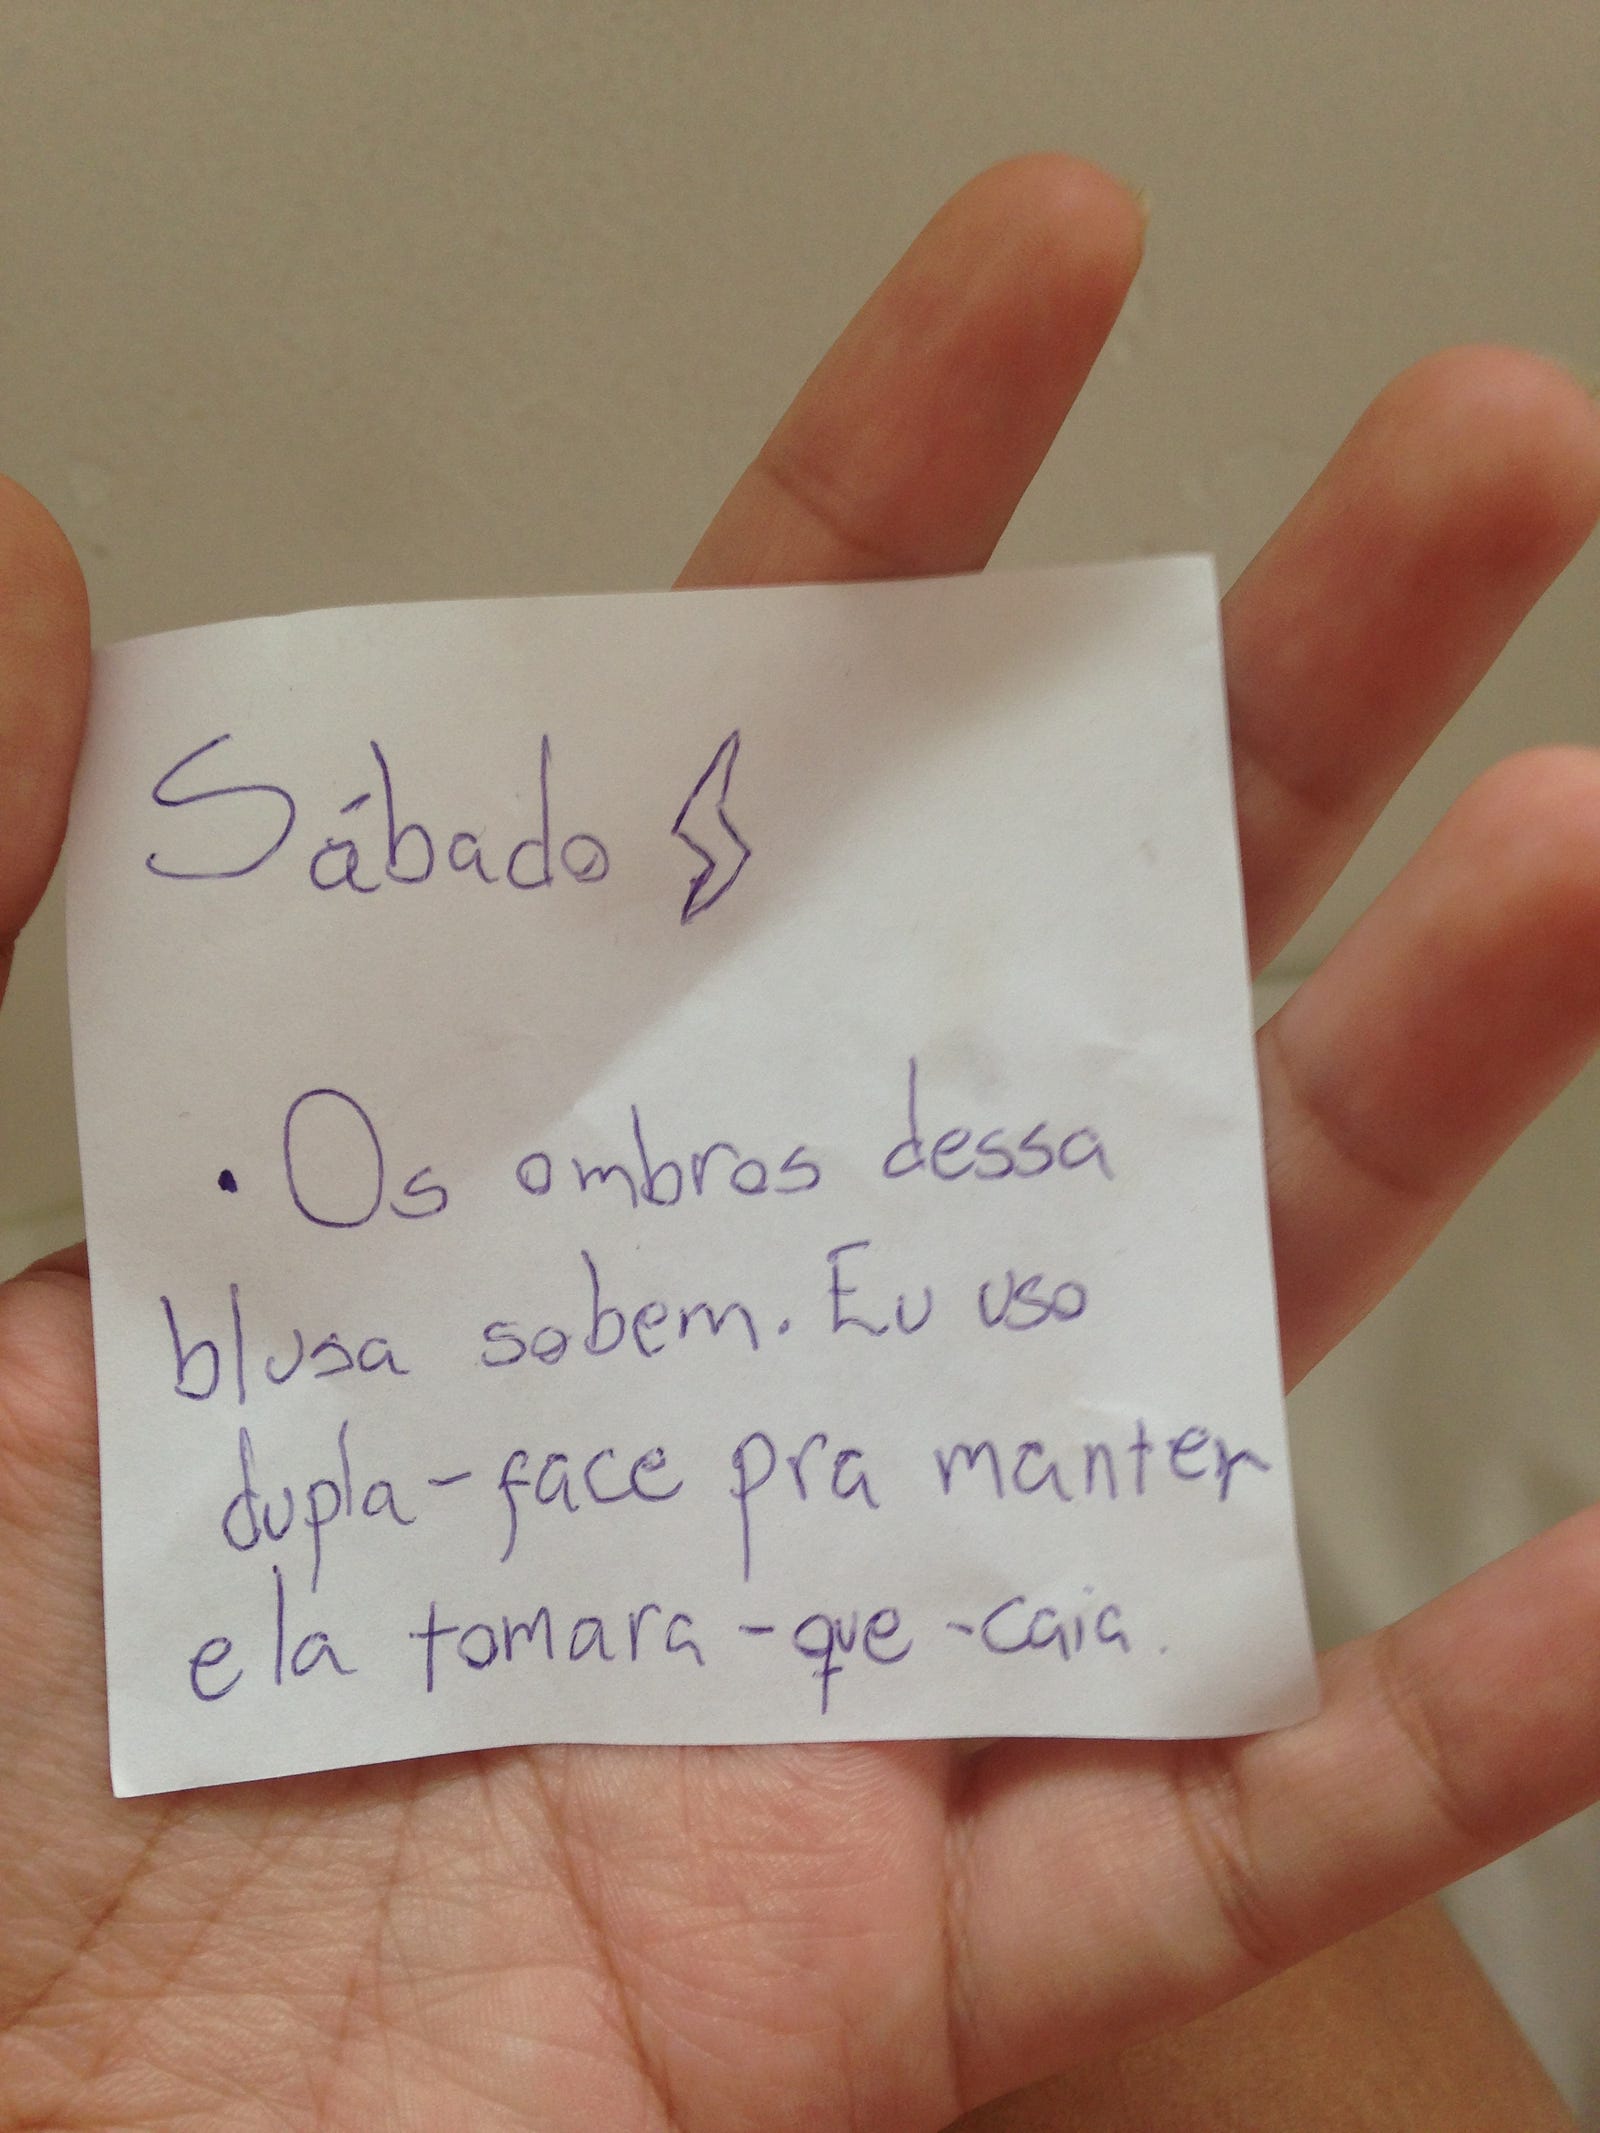 Sábado
• Os ombros dessa
blusa sobem. Eu uso
dupla-face pra manter
ela tomara-que-caia.